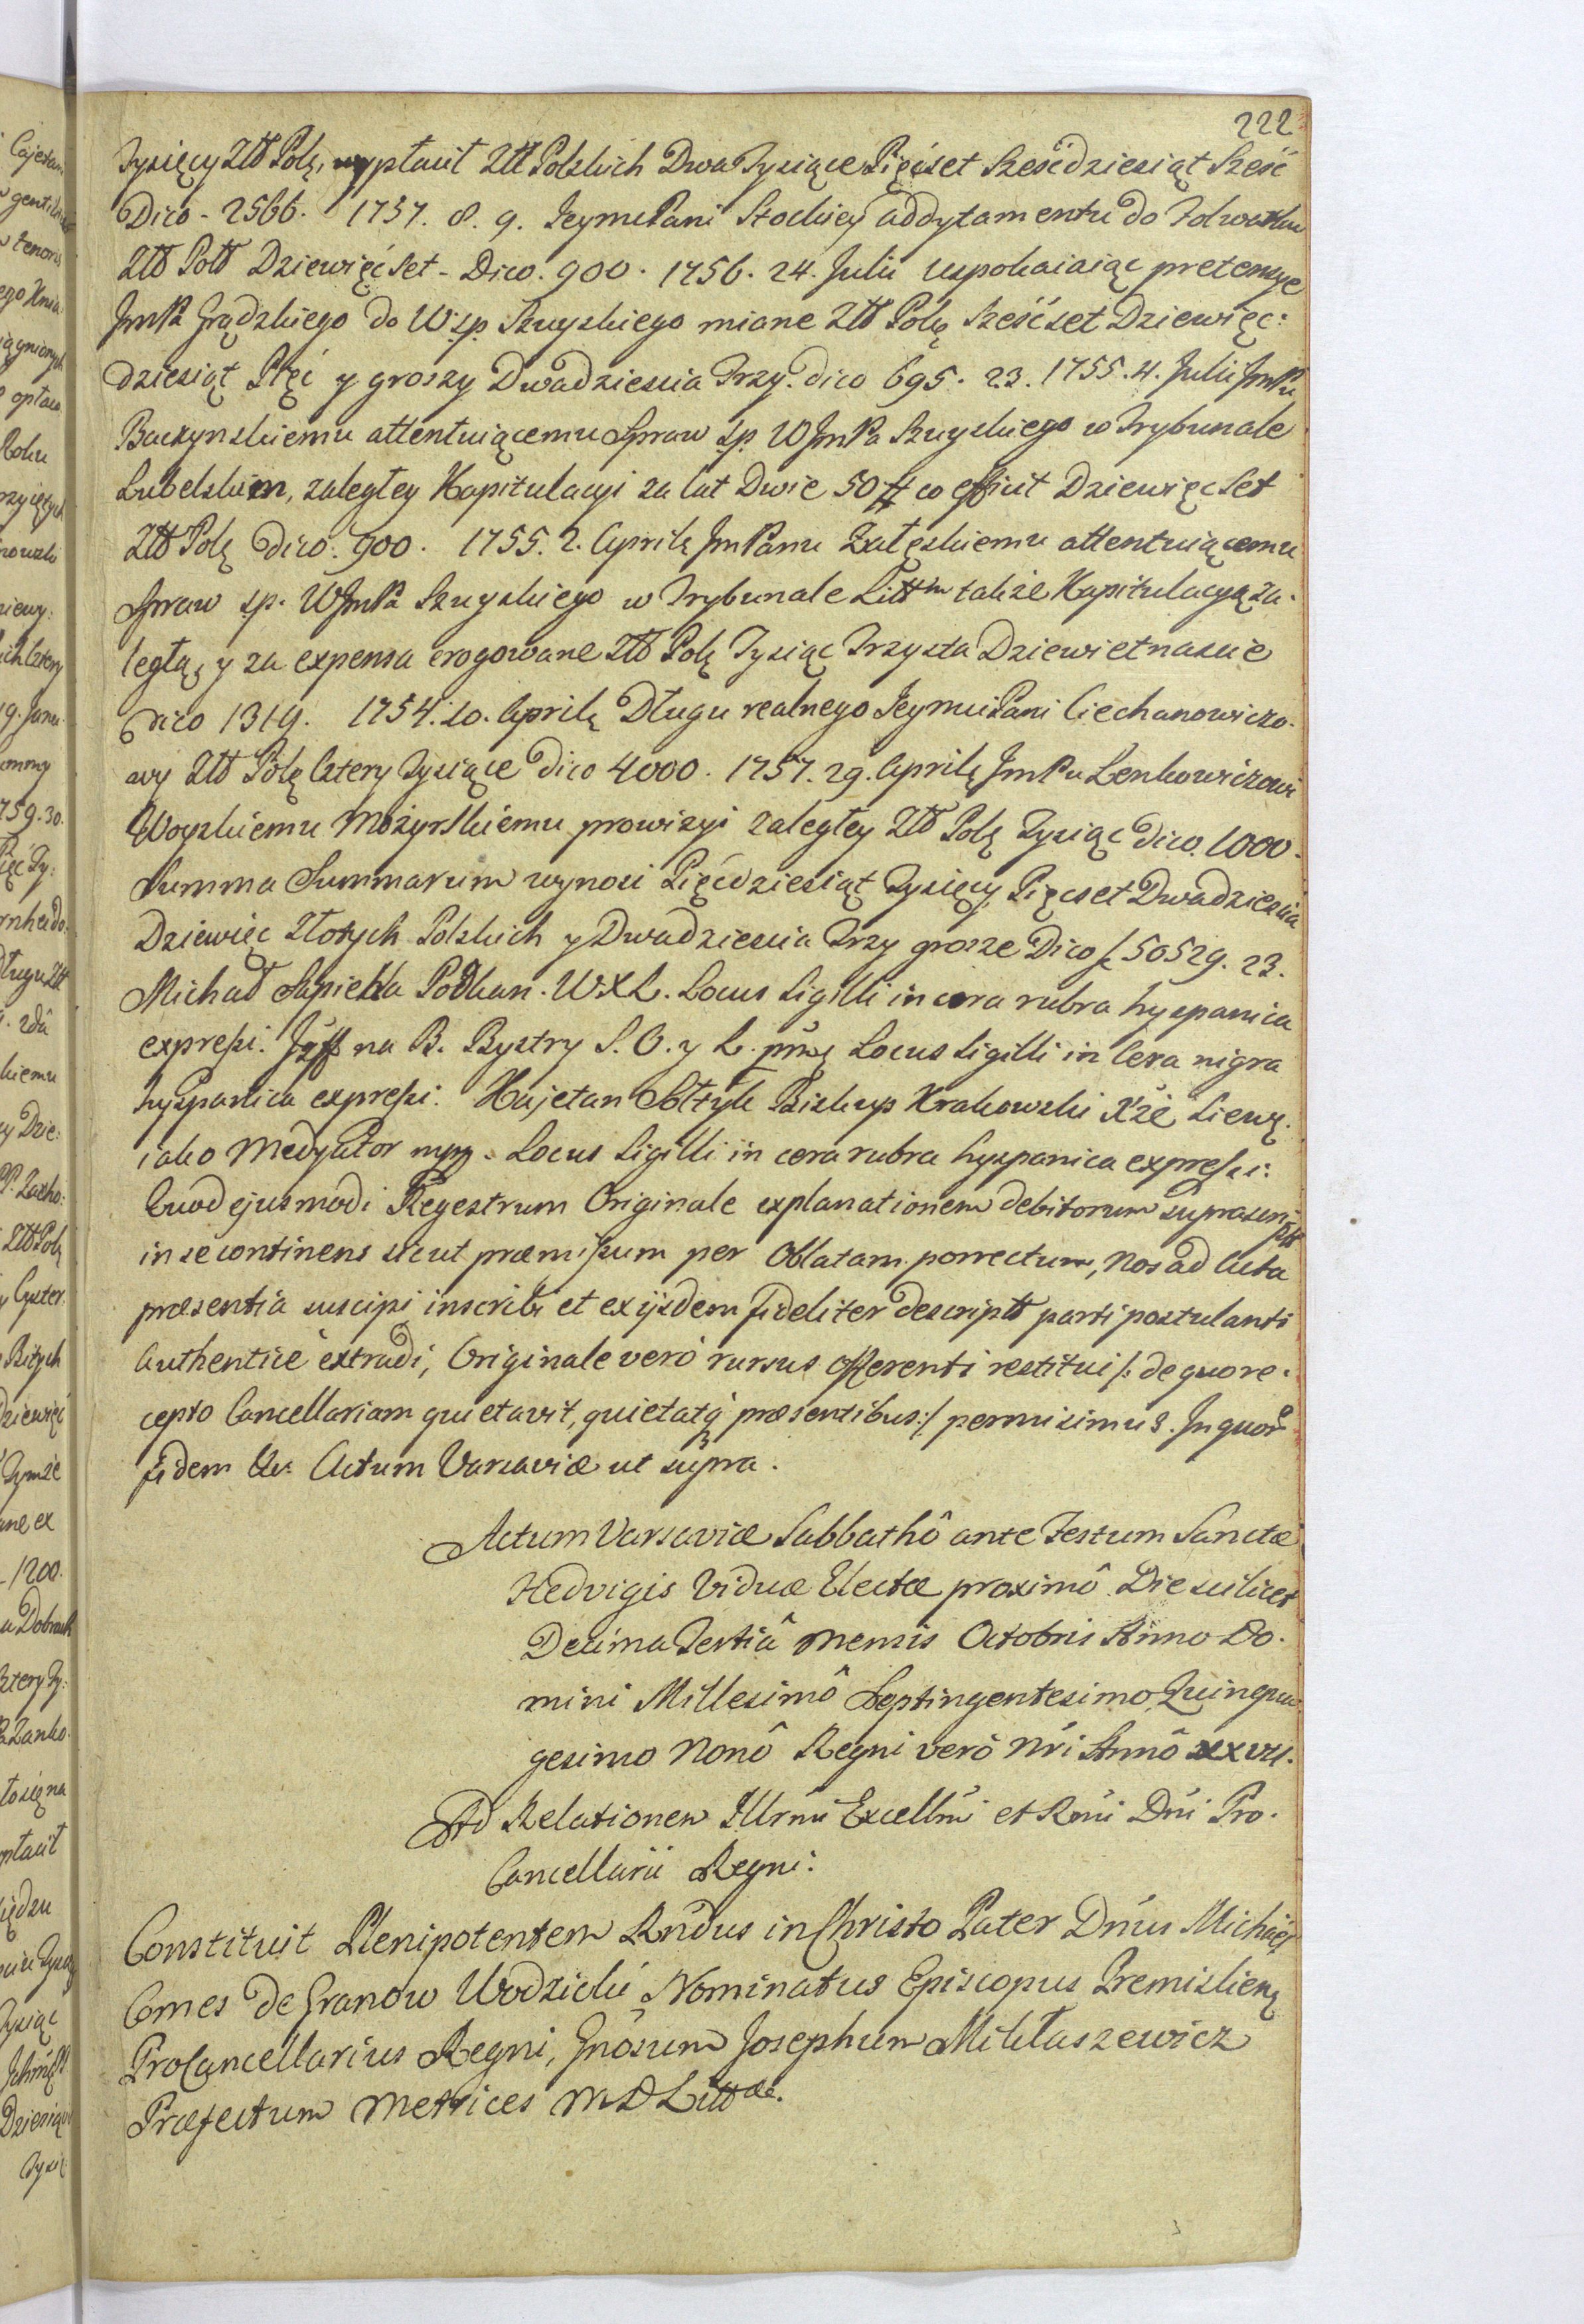 222
Tysięcy Ztt Polę, wypłacił Ztt Polskich Dwa Tysiące Pięćset Sześćdziesiąt Sześć
Dico - 2566. 1757. 8. 9. Jeymć Pani Stockiey addytamentu do Folwarku
Ztt Poltt Dziewięć Set - Dico. 900. 1756. 24. Julii uspokaiaiąc pretensye
JmPa Grądzkiego do W. s.p. Szuyskiego miane Ztt Polę Sześćset Dziewięc:
dziesiąt Pięć y groszy Dwadziescia Trzy. dico 695. 23. 1755. 4. Julii JmPu
Baczynskiemu attentuiącemu Spraw s.p. WJmPa Szuyskiego w Trybunale
Lubelskim, zaległey Kapitulacyi za lat Dwie 50 # co efficit Dziewięc Set
Ztt Polę dico. 900. 1755. 2. Aprilę JmPanu Załęskiemu attentuiącemu
Spraw s.p. WJmPa Szuyskiego w Trybunale Litt^m także Kapitulacyą za-
ległą, y za expensa erogowane Ztt Polę Tysiąc Trzysta Dziewietnascie
dico 1319. 1754. 10. Aprilę Długu realnego Jeymći Pani Ciechanowiczo-
wy Ztt Polę Cztery Tysiące dico 4000. 1757. 29. Aprilę JmPu Lenkowiczowi
Woyskiemu Mozyrskiemu prowizyi zaległey Ztt Polę Tysiąc dico. 1000.
Summa Summarum wynosi Pięćdziesiąt Tysięcy Pięcset Dwadziescia
Dziewięc Złotych Polskich y Dwadziescia Trzy grosze Dico f. 50529. 23.
Michał Sapieha Podkan. W.X.L. Locus Sigilli in cera rubra hyspanica
expressi. Jozff na B. Bystry S. O. y L. Locus Sigilli in Cera nigra
hyspanica expressi. Kajetan Sołtyk Biskup Krakowski X'że Siewę.
iako Medyator mpp. Locus Sigilli in cera rubra hyspanica expressi:
Quod ejusmodi Regestrum Originale explanationem debitorum suprascriptt
in se continens sicut præmissum per Oblatam porrectum, Nos ad Acta
præsentia suscipi inscribi et ex ijsdem fideliter descriptt parti postulanti
Authentice extradi, Originale verò rursus offerenti restitui /: de quo re-
cepto Cancellariam quietavit, quietatq præsentibus:/ permisimus. In quor
fidem &c. Actum Varsaviæ ut supra.
Actum Varsaviæ Sabbathô ante Festum Sanctæ
Hedvigis Viduæ Electæ proximô. Die scilicet
Decima Tertiâ mensis Octobris Anno Do-
mini Millesimô Septingentesimo Quinqua
gesimo Nonô Regni verò Nri Annô XXVII.
Ad Relationem Illrmi Excellmi et Rmi Dni Pro-
Cancellarii Regni:
Constituit Plenipotentem Rndus in Christo Pater Dnus Michäel
Comes de Granow Wodzicki Nominatus Episcopus Premislienę
ProCancellarius Regni, Gnôsum Josephum Mikłaszewicz
Præfectum Metrices M D Litt^æ.